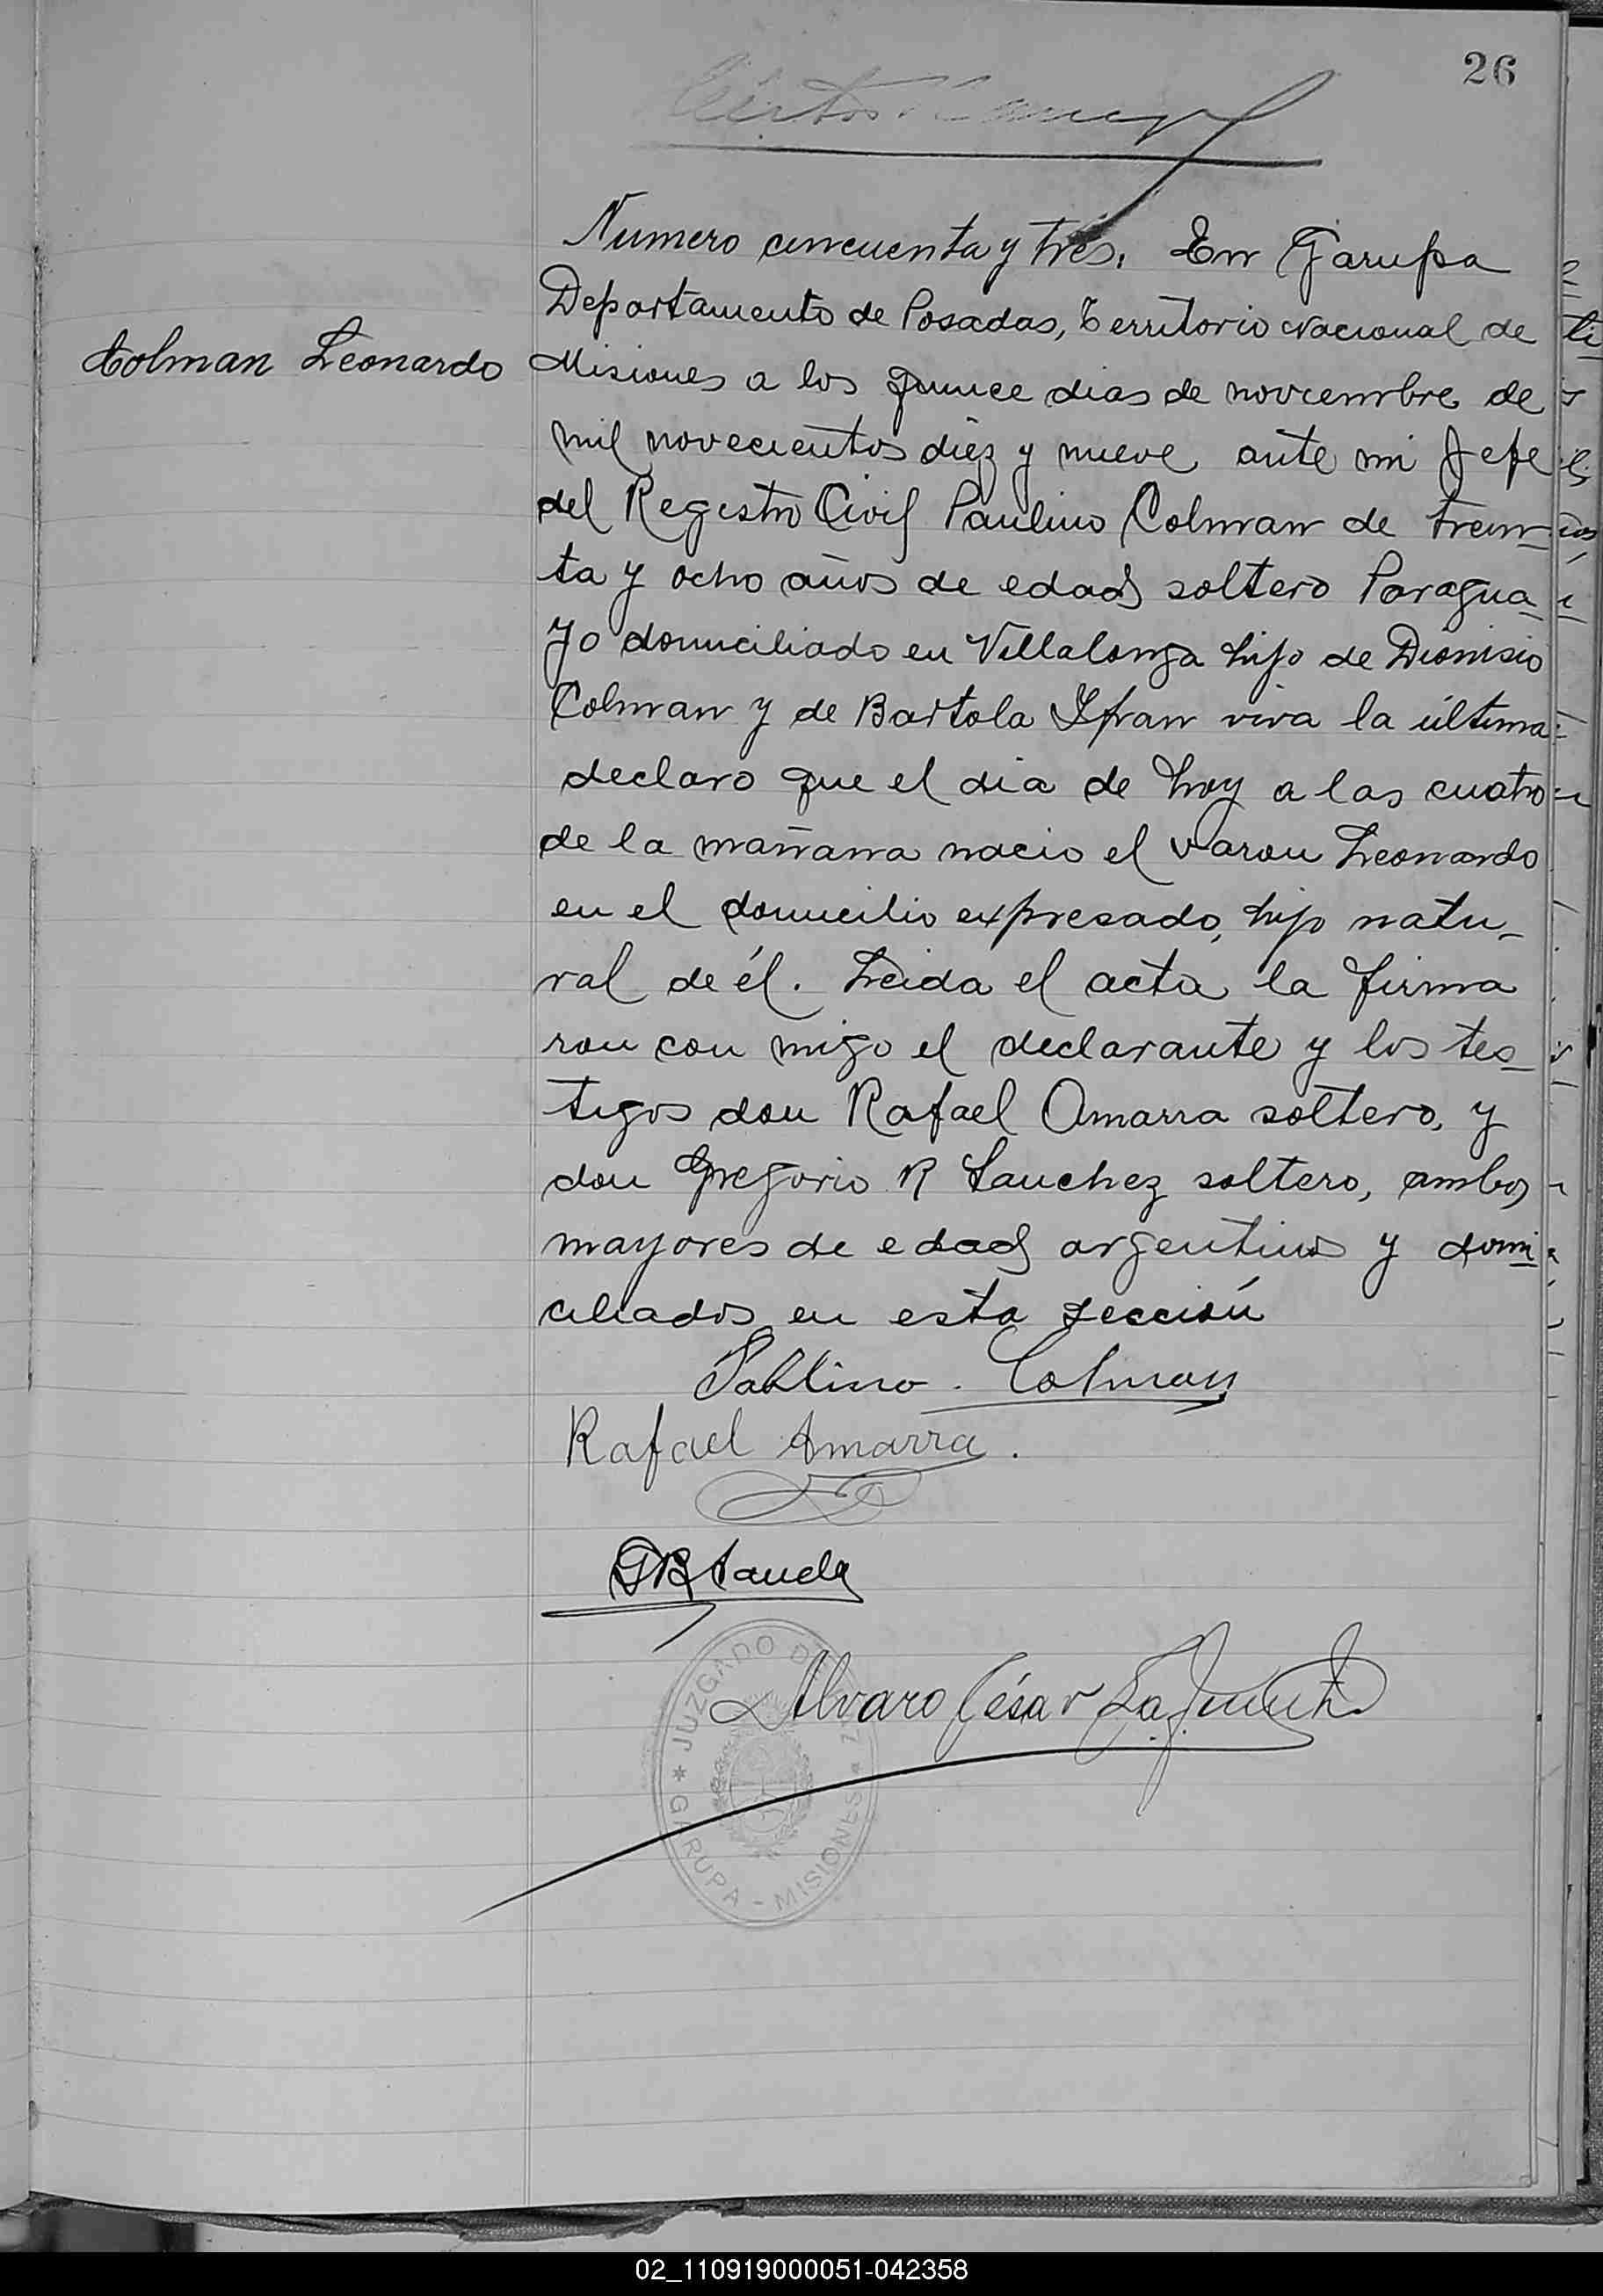 26
Numero cincuenta y tres. En Garupa
Departamento de Posadas, Territorio Nacional de
Colman Leonardo
Misiones a los quince dias de noviembre de
mil novecientos diez y nueve ante mi Jefe
del Registro Civil Paulino Colman de trein-
ta y ocho años de edad soltero Paragua-
yo domiciliado en Villalonga hijo de Dionisio
Colman y de Bartola Ifran viva la última
declaro que el dia de hoy a las cuatro
de la mañana nacio el varon Leonardo
en el domicilio expresado, hijo natu-
ral de él. Leida el acta la firma
ron con migo el declarante y los tes-
tigos don Rafael Amarra soltero, y
don Gregorio R Sanchez soltero, ambos
mayores de edad argentinos y domi-
ciliados en esta sección
Pablino Colman
Rafael Amarra.
Alvaro César
JUZGADO DE
GARUPA - MISIONES
02_110919000051-042358